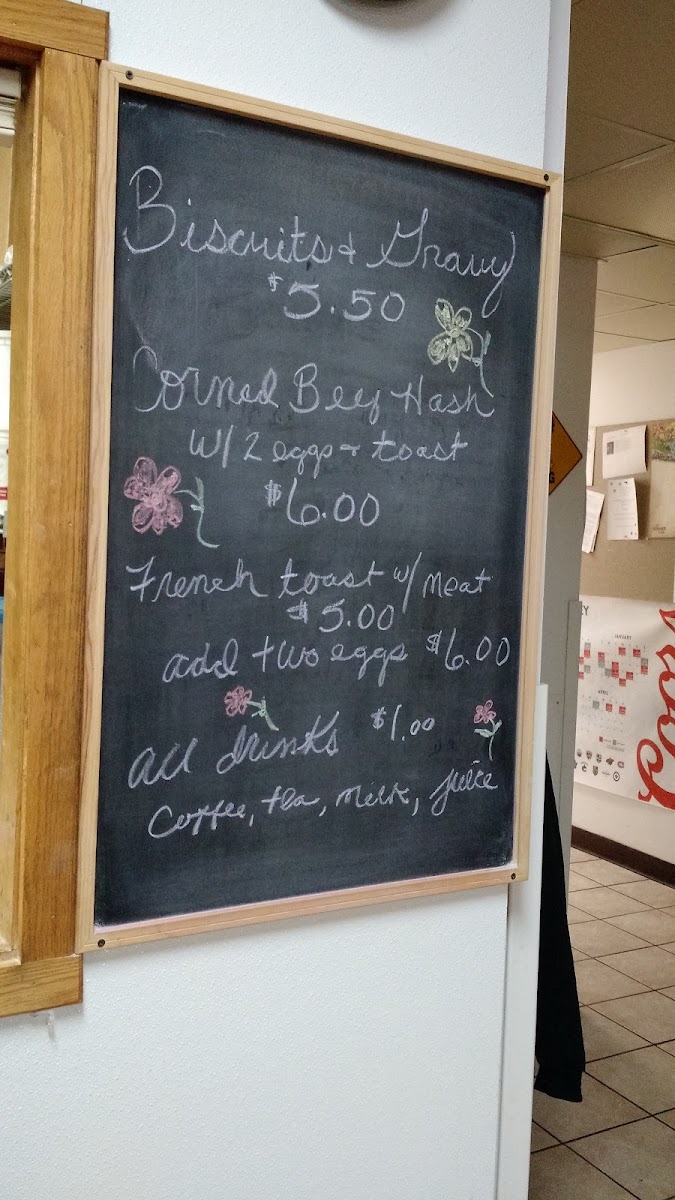 Biscuits & Gravy
$5.50
Corned Beef Hash
w/ 2 eggs & toast
$6.00
French toast w/ meat
$5.00
add two eggs $6.00
all drinks $1.00
Coffee, tea, milk, juice
JANUARY
APRIL